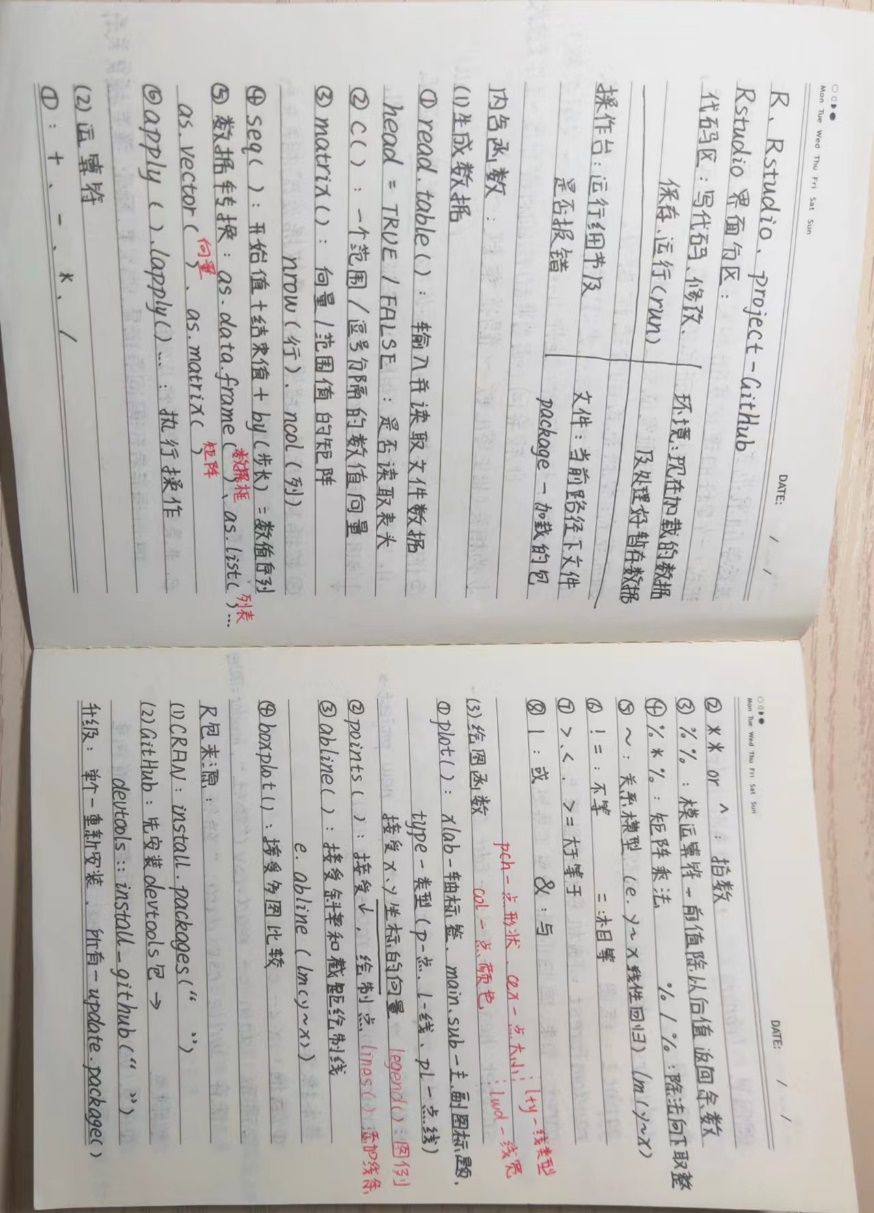 Mon Tue Wed Thu Fri Sat Sun
DATE: / /
R、Rstudio、project-GitHub
Rstudio 界面分区：
代码区：写代码、修改、
保存、运行(run)
环境：现在加载的数据
及处理好暂存数据
操作台：运行细节及
是否报错
文件：当前路径下文件
package - 加载的包
内含函数：
(1)生成数据
① read.table()：输入并读取文件数据
head = TRUE / FALSE：是否读取表头
② c()：一个范围/逗号分隔的数值向量
③ matrix()：向量/范围值的矩阵
nrow(行)、ncol(列)
④ seq()：开始值+结束值+by(步长)=数值序列
⑤ 数据转换：as.data.frame( )、as.list( )…
数据框 列表
as.vector( )、as.matrix( )
向量 矩阵
⑥ apply()、lapply()…：执行操作
(2)运算符
①：+、-、*、/
Mon Tue Wed Thu Fri Sat Sun
DATE: / /
② ** or ^：指数
③ %%：模运算符-前值除以后值返回余数
④ %*%：矩阵乘法 %/%：除法向下取整
⑤ ~：关系模型 (e. y~x线性回归) lm(y~x)
⑥ !=：不等 ==：相等
⑦ >、<、>=大于等于
⑧ |：或 &：与
(3)绘图函数
pch-点形状、cex-点大小；lty-线类型
col-点颜色 ；lwd-线宽
① plot()：xlab-轴标签、main.sub-主副图标题、
type-类型(p-点、l-线、pl-点线)
接受x.y坐标的向量 legend()：图例
② points()：接受↓，绘制点 lines()添加线条
③ abline()：接受斜率和截距绘制线
e. abline (lm(y~x))
④ boxplot()：接受多图比较
R包来源：
(1)CRAN：install.packages(“ ”)
(2)GitHub：先安装devtools包→
devtools::install_github(“ ”)
升级：单个-重新安装、所有-update.package()